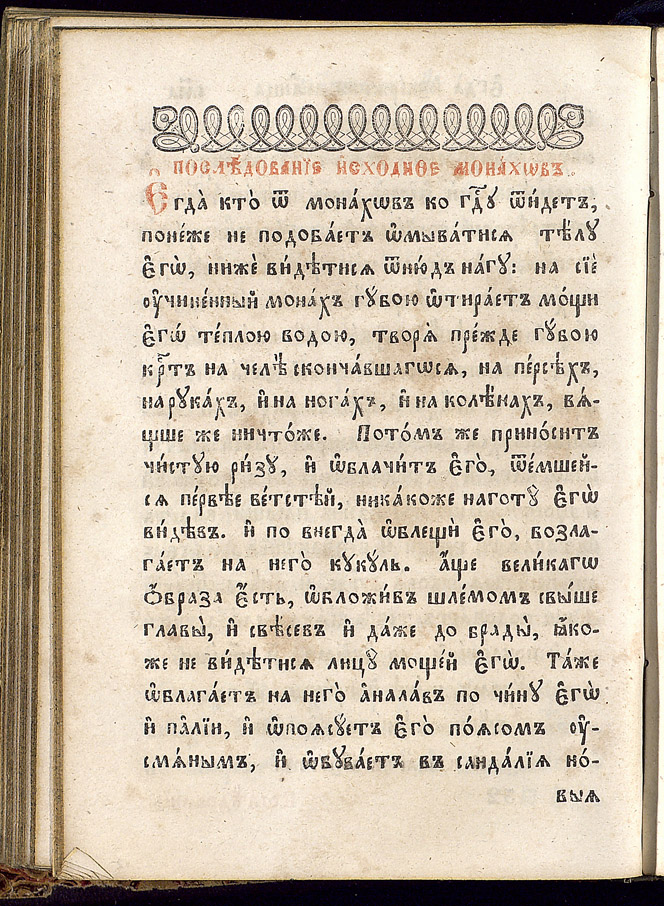 ПОСЛѢ́ДОВАНЇЕ И҆СХО́ДНОЕ МОНА́ХѠВЪ.
Е҆гда̀ кто̀ ѿ мона́хѡвъ ко гдⷭ҇ꙋ ѿи́детъ,
поне́же не подоба́етъ ѡ҆мыва́тисѧ тѣ́лꙋ
є҆гѡ̀, нижѐ ви́дѣтисѧ ѿню́дъ на́гꙋ: на сїѐ
ᲂу҆чине́нный мона́хъ гꙋ́бою ѡ҆тира́етъ мо́щи
є҆гѡ̀ те́плою водо́ю, творѧ̀ пре́жде гꙋ́бою
крⷭ҇тъ на челѣ̀ сконча́вшагѡсѧ, на пе́рсѣхъ,
на рꙋка́хъ, и҆ на нога́хъ, и҆ на колѣ́нахъ, вѧ́-
щше же ничто́же. Пото́мъ же прино́ситъ
чи́стꙋю ри́зꙋ, и҆ ѡ҆блачи́тъ є҆го̀, ѿе́мшей-
сѧ пе́рвѣе ве́тстѣй, ника́коже наготꙋ̀ є҆гѡ̀
ви́дѣвъ. и҆ по внегда̀ ѡ҆блещѝ є҆го̀, возла-
га́етъ на него̀ кꙋ́кꙋль. а҆́ще вели́кагѡ
ѻ҆́браза є҆́сть, ѡ҆бложи́въ шле́момъ свы́ше
главы̀, и҆ свѣ́севъ и҆ да́же до брады̀, ꙗ҆́ко-
же не ви́дѣтисѧ лицꙋ̀ моще́й є҆гѡ̀. Та́же
ѡ҆блага́етъ на него̀ а҆нала́въ по чи́нꙋ є҆гѡ̀
и҆ па́лїи, и҆ ѡ҆поѧ́сꙋетъ є҆го̀ по́ѧсомъ ᲂу҆-
смѧ́нымъ, и҆ ѡ҆бꙋва́етъ въ санда́лїѧ но́-
выѧ